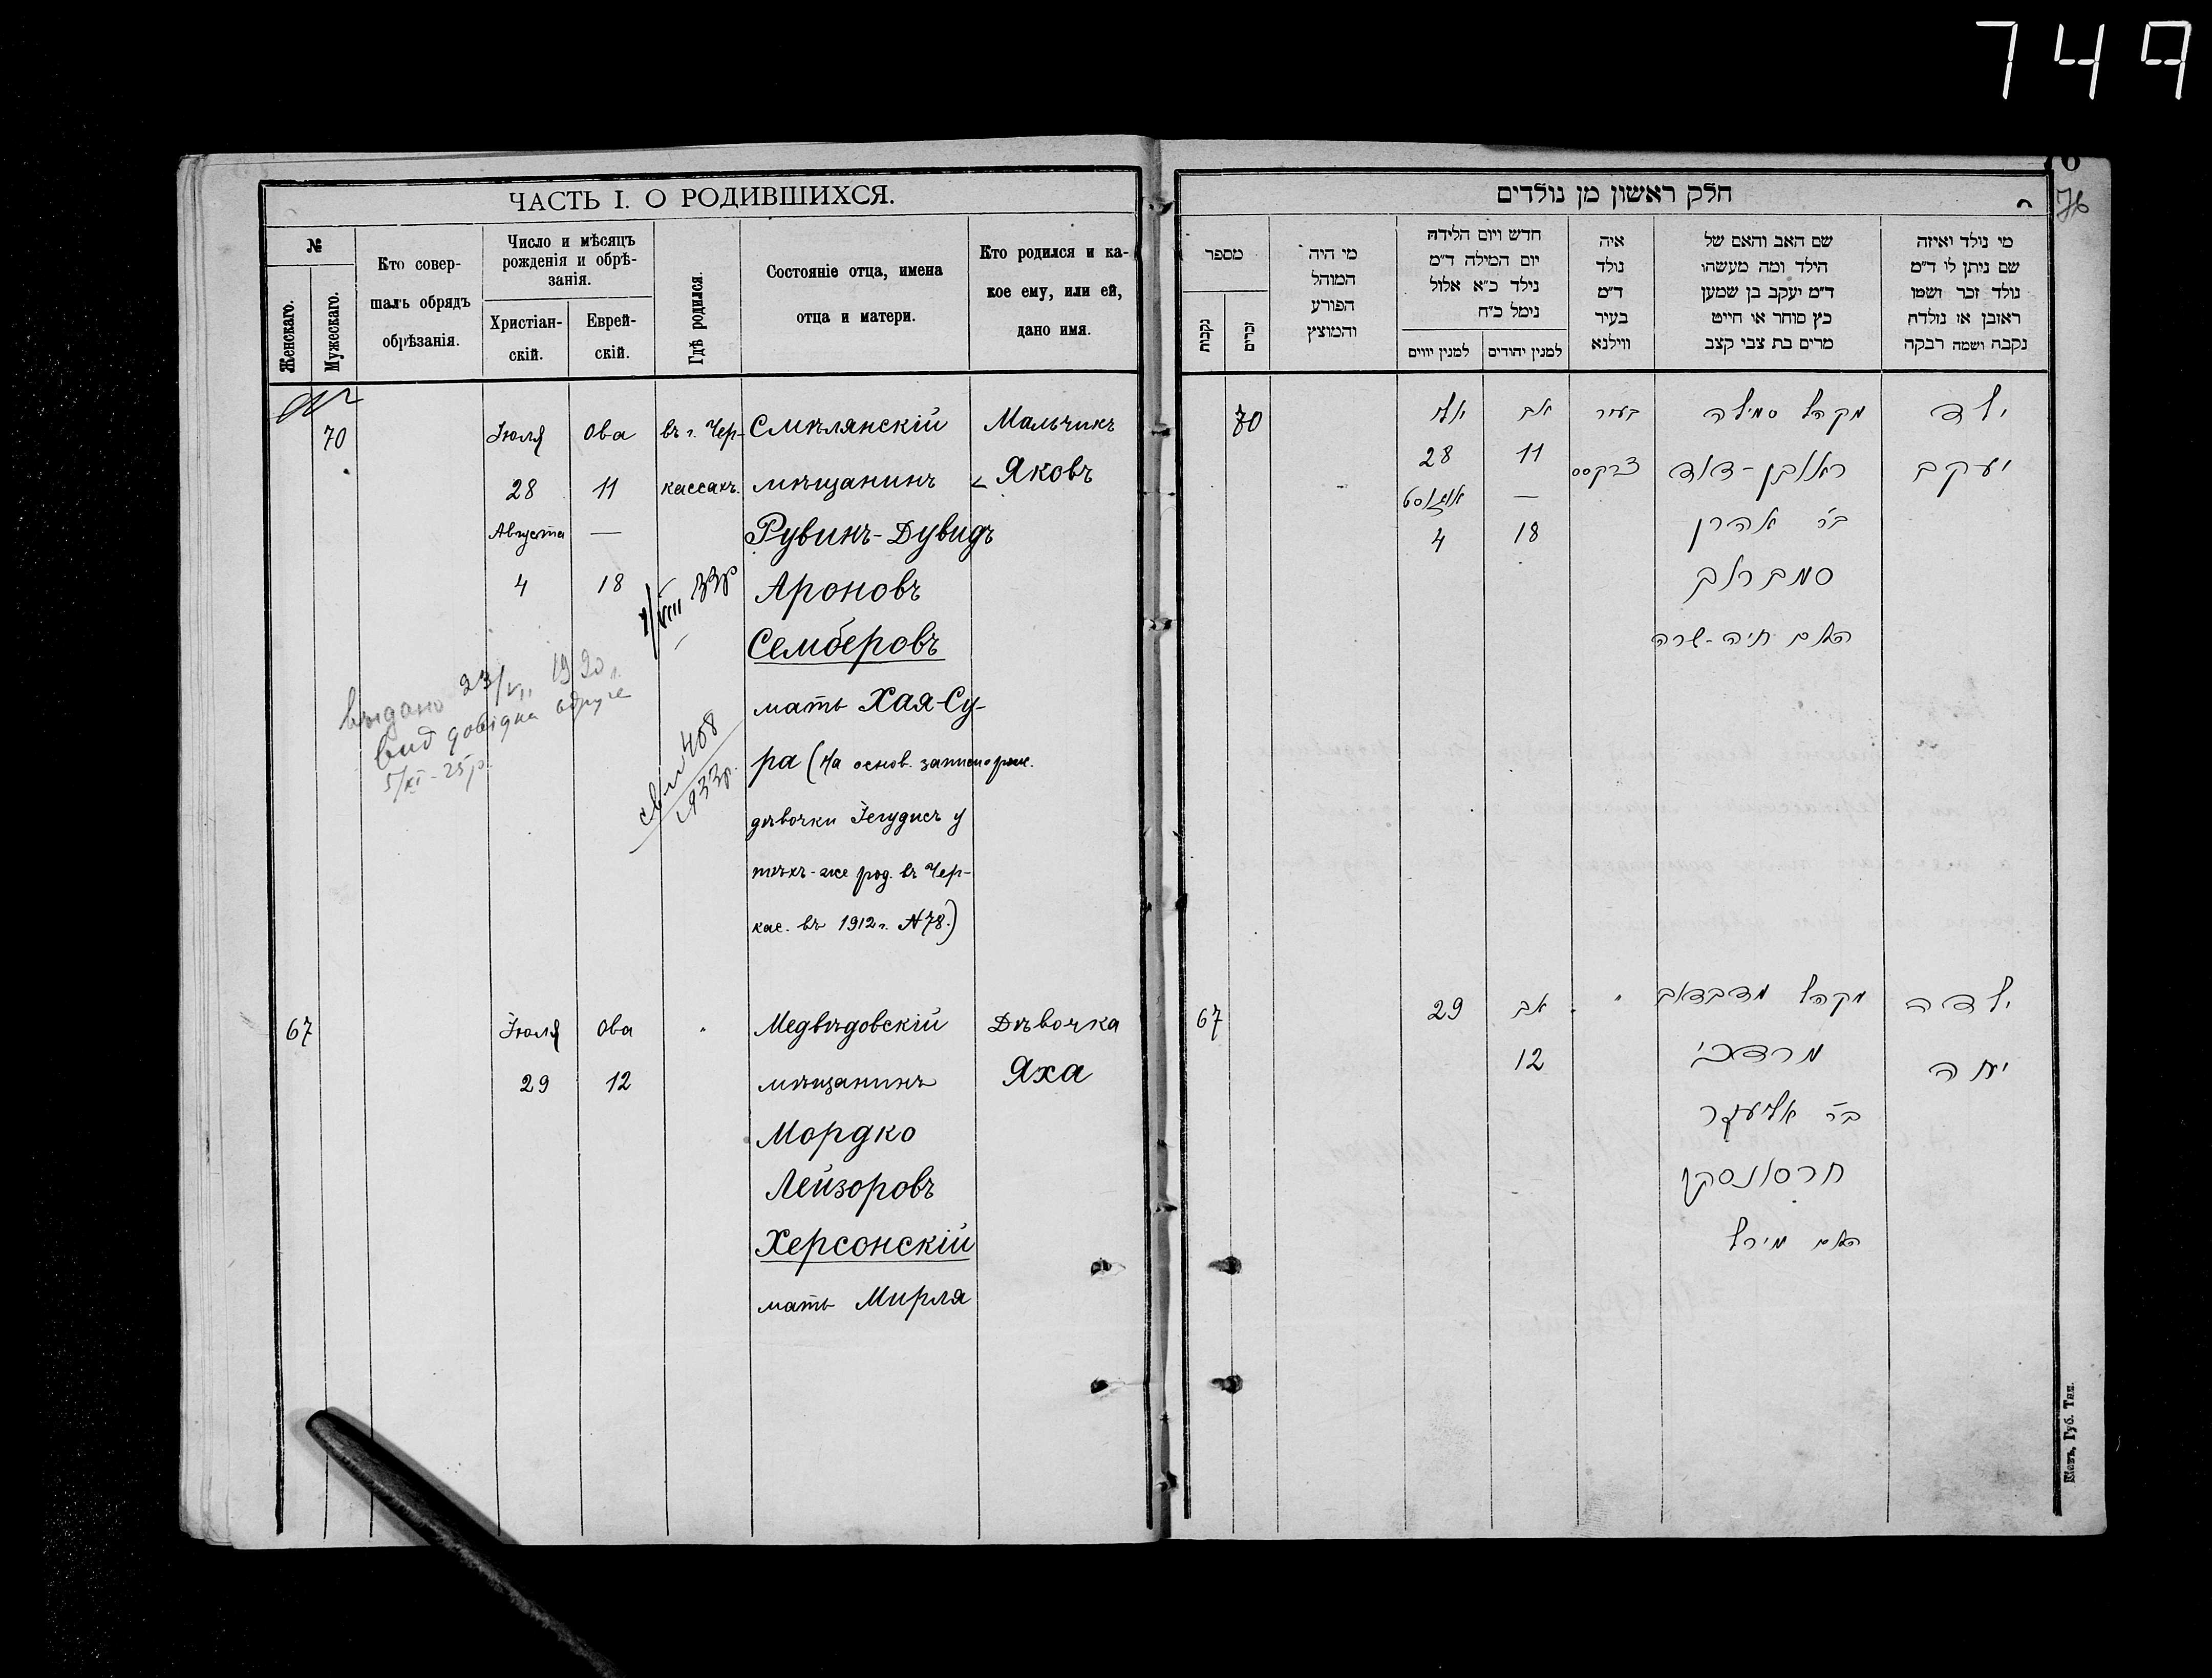 749
76
ЧАСТЬ I. О РОДИВШИХСЯ.
№
Женскаго.
Мужескаго.
Кто совер-
шалъ обрядъ
обрѣзанія.
Число и мѣсяцъ
рожденія и обрѣ-
занія.
Христіан-
скій.
Еврей-
скій.
Гдѣ родился.
Состояніе отца, имена
отца и матери.
Кто родился и ка-
кое ему, или ей,
дано имя.
70
Іюля
28
Августа
4
Ова
11
—
18
въ г. Чер-
кассахъ.
Смѣлянскій
мѣщанинъ
Рувинъ-Дувидъ
Ароновъ
Семберовъ
мать Хая-Су-
ра (На основ. записи о рож.
дѣвочки Іегудисъ у
тѣхъ-же род. въ Чер-
кас. въ 1912 г. №78.)
Мальчикъ
Яковъ
1/VIII 33р
выдано 23/VII 1920 г.
вид довідка вдруге
5/XI-25р.
408
1933р.
67
Іюля
29
Ова
12
"
Медвѣдовскій
мѣщанинъ
Мордко
Лейзоровъ
Херсонскій
мать Мирля
Дѣвочка
Яха
חלק ראשון מן נולדים
מספר
נקבות
זכרים
מי היה
המוהל
הפורע
והמוצץ
חדש ויום הלידה
יום המילה ד״מ
נילד כ״א אלול
נימל כ״ח
למנין יווים
למנין יהודים
איה
נולד
ד״מ
בעיר
ווילנא
שם האב והאם של
הילד ומה מעשהו
ד״מ יעקב בן שמען
כץ סוחר או חייט
מרים בת צבי קצב
מי נולד ואיזה
שם ניתן לו ד״מ
נולד זכר ושמו
ראובן או נולדה
נקבה ושמה רבקה
70
יולי
28
אוגוסט
4
אב
11
—
18
בעיר
צרקסס
מקהל סמילה
ראובן-דוד
ב״ר אהרן
סמבראב
האם חיה-שרה
ילד
יעקב
67
29
אב
12
"
מקהל מדבדאב
מרדכי
ב״ר אליעזר
חרסונסקי
האם מירל
ילדה
יאחה
Кіевъ, Губ. Тип.